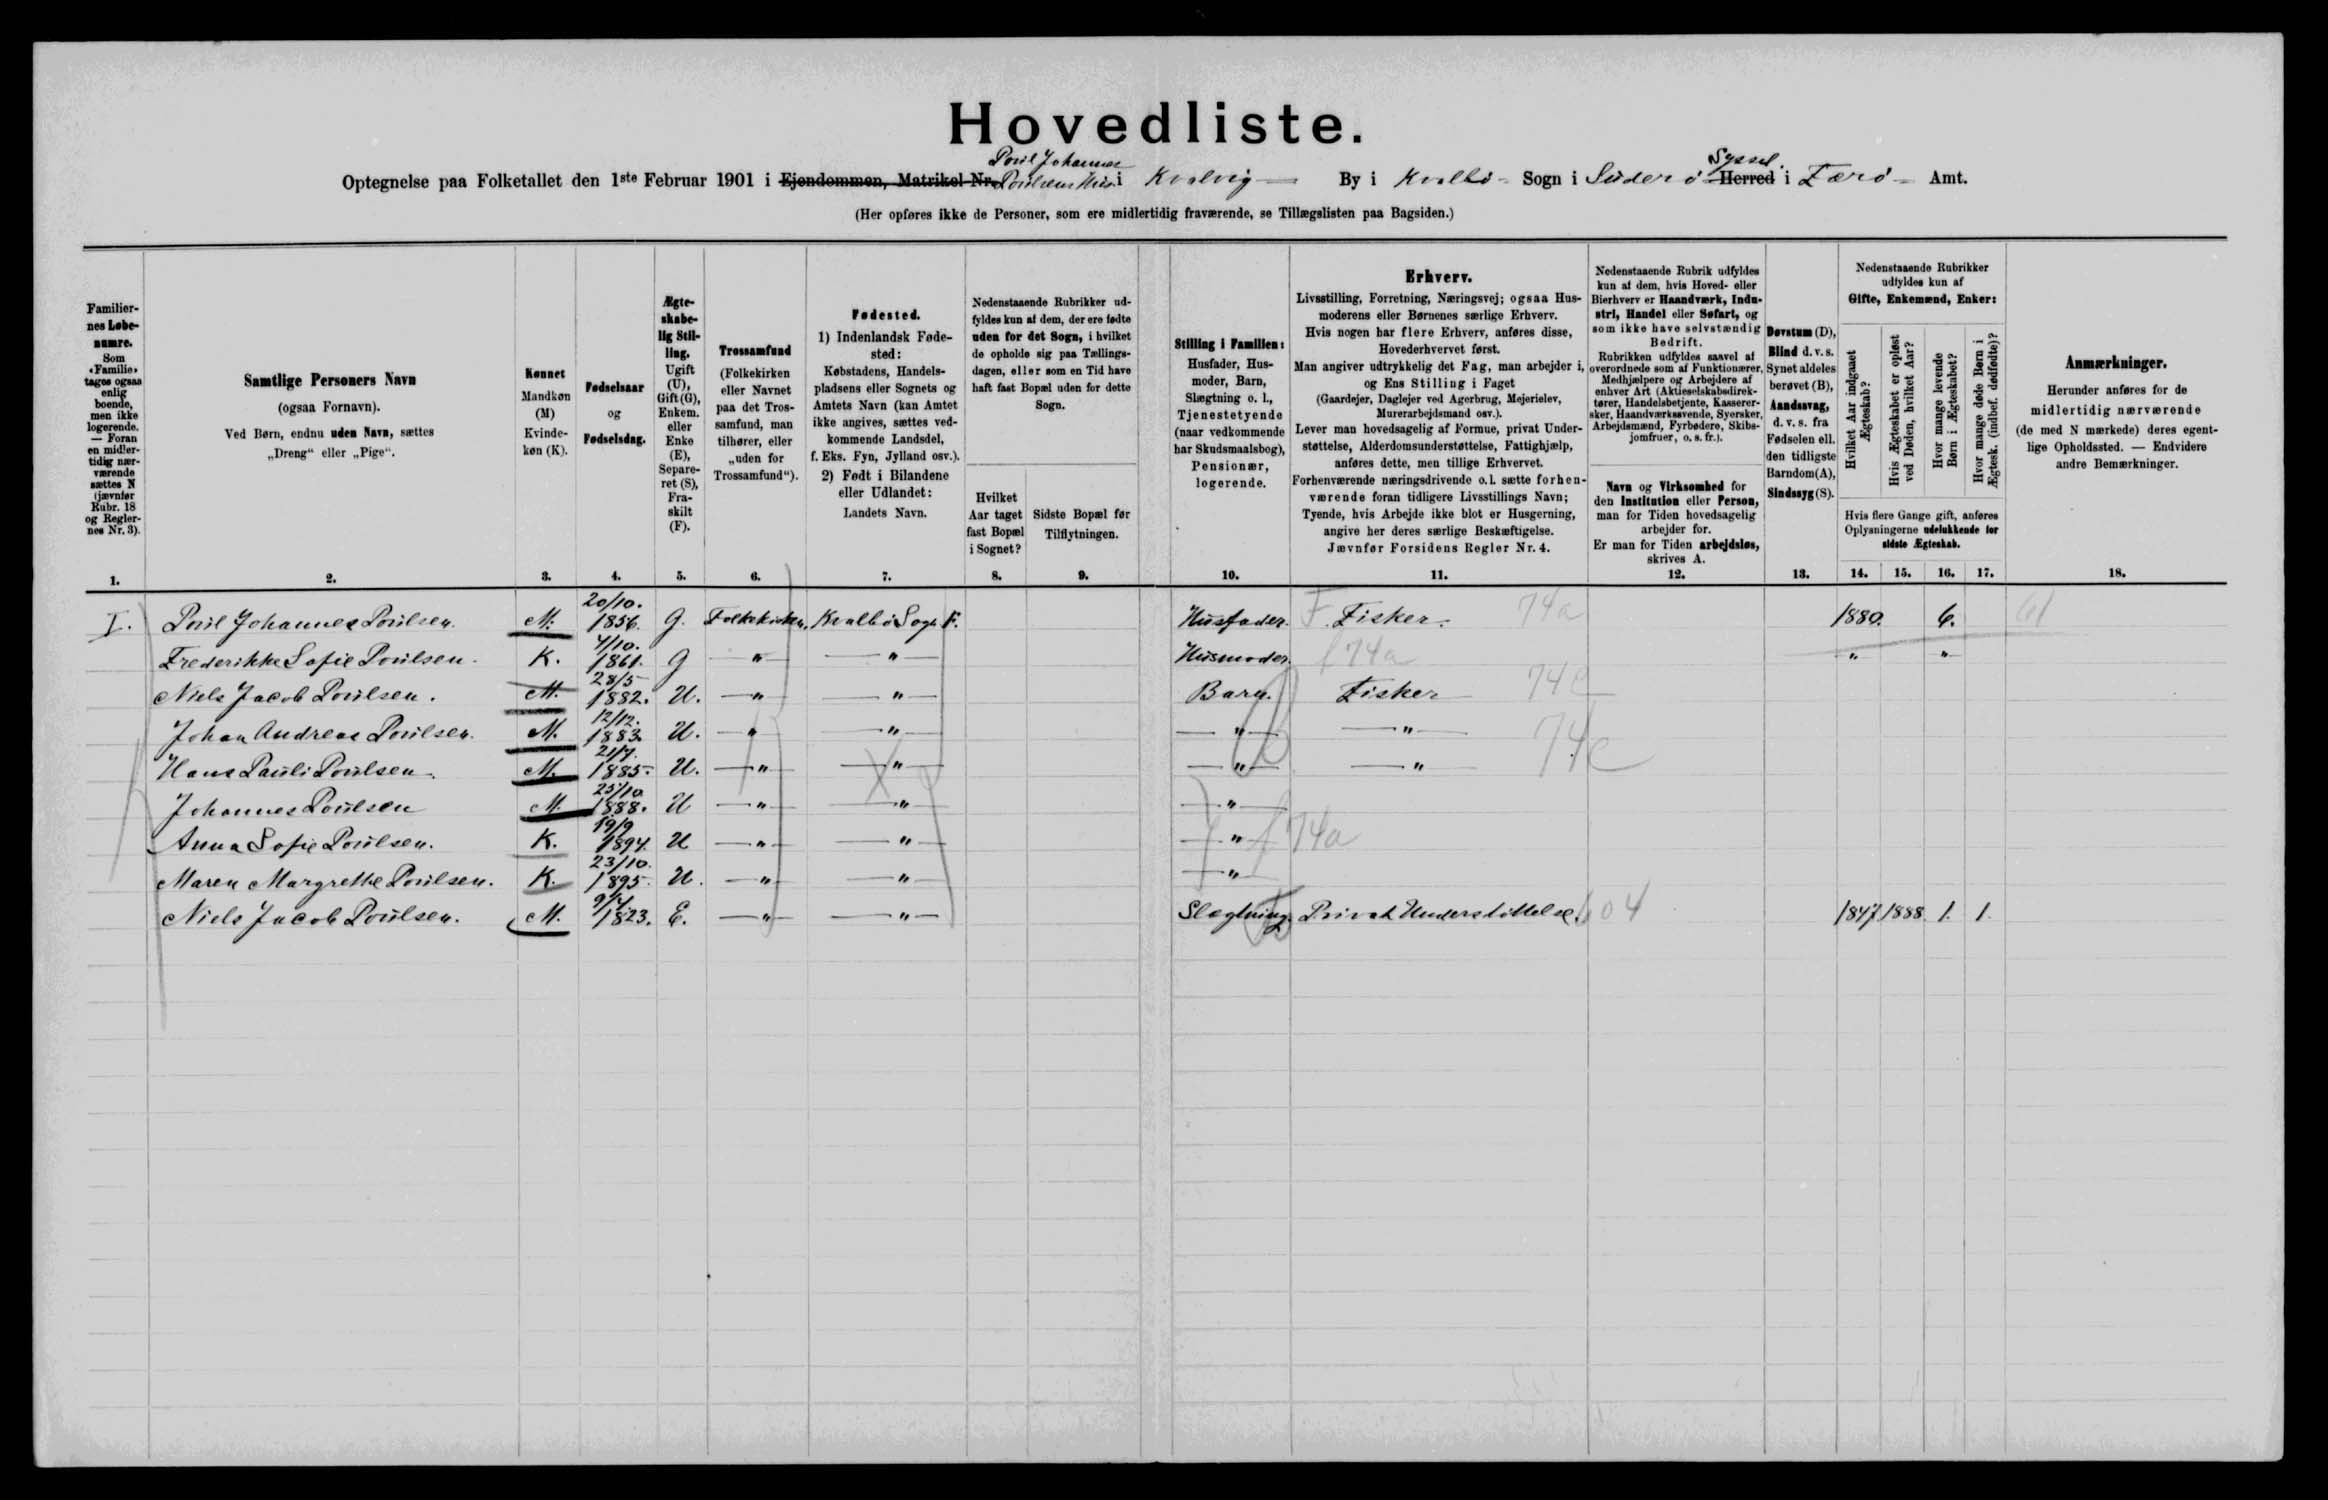 Hovedliste.
Poul Johannes Syssel.
Optegnelse paa Folketallet den 1ste Februar 1901 i Ejendommen, Matrikel Nr. Poulsens Hus. i Kvalvig By i Kvalbø Sogn i Suderø Herred i Færø Amt.
(Her opføres ikke de Personer, som ere midlertidig fraværende, se Tillægslisten paa Bagsiden.)
Familier-
nes Løbe-
numre.
Som
«Familie»
tages ogsaa
enlig
boende,
men ikke
logerende.
— Foran
en midler-
tidig nær-
værende
sættes N
(jævnfør
Rubr. 18
og Regler-
nes Nr. 3).
1.
Samtlige Personers Navn
(ogsaa Fornavn).
Ved Børn, endnu uden Navn, sættes
„Dreng“ eller „Pige“.
2.
Kønnet
Mandkøn
(M)
Kvinde-
køn (K).
3.
Fødselsaar
og
Fødselsdag.
4.
Ægte-
skabe-
lig Stil-
ling.
Ugift
(U),
Gift (G),
Enkem.
eller
Enke
(E),
Separe-
ret (S),
Fra-
skilt
(F).
5.
Trossamfund
(Folkekirken
eller Navnet
paa det Tros-
samfund, man
tilhører, eller
„uden for
Trossamfund“).
6.
Fødested.
1) Indenlandsk Føde-
sted:
Købstadens, Handels-
pladsens eller Sognets og
Amtets Navn (kan Amtet
ikke angives, sættes ved-
kommende Landsdel,
f. Eks. Fyn, Jylland osv.).
2) Født i Bilandene
eller Udlandet:
Landets Navn.
7.
Nedenstaaende Rubrikker ud-
fyldes kun af dem, der ere fødte
uden for det Sogn, i hvilket
de opholde sig paa Tællings-
dagen, eller som en Tid have
haft fast Bopæl uden for dette
Sogn.
Hvilket
Aar taget
fast Bopæl
i Sognet?
8.
Sidste Bopæl før
Tilflytningen.
9.
Stilling i Familien:
Husfader, Hus-
moder, Barn,
Slægtning o. l.,
Tjenestetyende
(naar vedkommende
har Skudsmaalsbog),
Pensionær,
logerende.
10.
Erhverv.
Livsstilling, Forretning, Næringsvej; ogsaa Hus-
moderens eller Børnenes særlige Erhverv.
Hvis nogen har flere Erhverv, anføres disse,
Hovederhvervet først.
Man angiver udtrykkelig det Fag, man arbejder i,
og Ens Stilling i Faget
(Gaardejer, Daglejer ved Agerbrug, Mejerielev,
Murerarbejdsmand osv.).
Lever man hovedsagelig af Formue, privat Under-
støttelse, Alderdomsunderstøttelse, Fattighjælp,
anføres dette, men tillige Erhvervet.
Forhenværende næringsdrivende o. l. sætte forhen-
værende foran tidligere Livsstillings Navn;
Tyende, hvis Arbejde ikke blot er Husgerning,
angive her deres særlige Beskæftigelse.
Jævnfør Forsidens Regler Nr. 4.
11.
Nedenstaaende Rubrik udfyldes
kun af dem, hvis Hoved- eller
Bierhverv er Haandværk, Indu-
stri, Handel eller Søfart, og
som ikke have selvstændig
Bedrift.
Rubrikken udfyldes saavel af
overordnede som af Funktionærer,
Medhjælpere og Arbejdere af
enhver Art (Aktieselskabsdirek-
tører, Handelsbetjente, Kasserer-
sker, Haandværkssvende, Syersker,
Arbejdsmænd, Fyrbødere, Skibs-
jomfruer, o. s. fr.).
Navn og Virksomhed for
den Institution eller Person,
man for Tiden hovedsagelig
arbejder for.
Er man for Tiden arbejdsløs,
skrives A.
12.
Døvstum (D),
Blind d. v. s.
Synet aldeles
berøvet (B),
Aandssvag,
d. v. s. fra
Fødselen ell.
den tidligste
Barndom (A),
Sindssyg (S).
13.
Nedenstaaende Rubrikker
udfyldes kun af
Gifte, Enkemænd, Enker:
Hvilket Aar indgaaet
Ægteskab?
Hvis Ægteskabet er opløst
ved Døden, hvilket Aar?
Hvor mange levende
Børn i Ægteskabet?
Hvor mange døde Børn i
Ægtesk. (indbef. dødfødte)?
Hvis flere Gange gift, anføres
Oplysningerne udelukkende for
sidste Ægteskab.
14. 15. 16. 17.
Anmærkninger.
Herunder anføres for de
midlertidig nærværende
(de med N mærkede) deres egent-
lige Opholdssted. — Endvidere
andre Bemærkninger.
18.
I. Poul Johannes Poulsen. M. 20/10. 1856. G. Folkekirken. Kvalbø Sogn F. Husfader. F Fisker. 74a 1880. 6. 61
Frederikke Sofie Poulsen. K. 4/10. 1861. G — " — — " — Husmoder. f 74a " "
Niels Jacob Poulsen. M. 28/5 1882. U. — " — — " — Barn. Fisker 74c
Johan Andreas Poulsen. M. 12/12. 1883. U. — " — — " — — " — — " — 74c
Hans Pauli Poulsen. M. 21/7. 1885. U. — " — — " — — " — — " —
Johannes Poulsen M. 25/10 1888. U — " — — " — — " —
Anna Sofie Poulsen. K. 19/9 1894. U — " — — " — — " — f 74a
Maren Margrethe Poulsen. K. 23/10. 1895. U. — " — — " — — " —
Niels Jacob Poulsen. M. 9/4. 1823. E. — " — — " — Slægtning. Privat Understøttelse. 604 1847 1888. 1. 1.